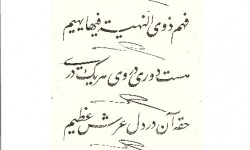 فهم ذوی النهیة فیها یهیم
هست دوری در وی هر یک دری
حقه آن در دل عرش عظیم